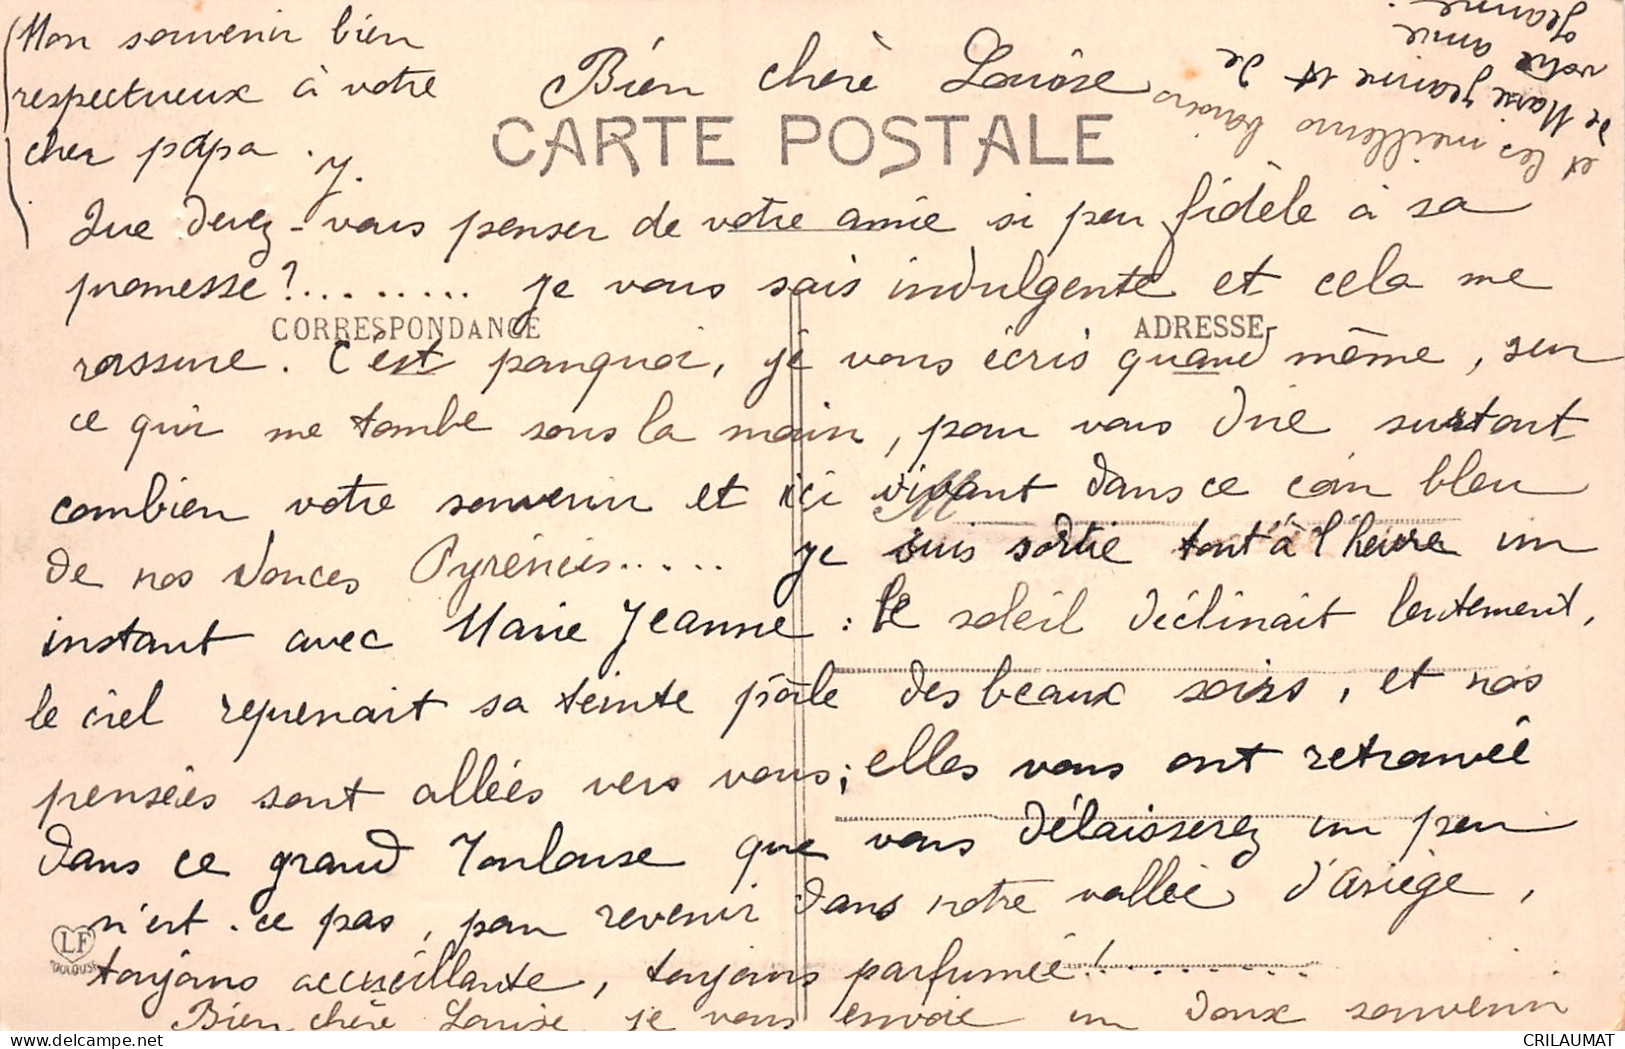 Mon souvenir bien
respectueux à votre
cher papa.
J.
Bien chère Louise
CARTE POSTALE
Que devez-vous penser de votre amie si peu fidèle à sa
promesse ?........ Je vous sais indulgente et cela me
CORRESPONDANCE
ADRESSE
rassure. C'est pourquoi, je vous écris quand même, sur
ce qui me tombe sous la main, pour vous dire surtout
combien votre souvenir et ici vivant dans ce coin bleu
de nos douces Pyrénées..... Je suis sortie tout à l'heure un
instant avec Marie Jeanne : le soleil déclinait lentement,
le ciel reprenait sa teinte pâle des beaux soirs, et nos
pensées sont allées vers vous ; elles vous ont retrouvée
dans ce grand Toulouse que vous délaisserez un peu
n'est-ce pas, pour revenir dans notre vallée d'Ariège,
LF
TOULOUSE
toujours accueillante, toujours parfumée !........
Bien chère Louise, je vous envoie un doux souvenir
et les meilleurs baisers
de Marie Jeanne et de
votre amie
Jeanne.
CRILAUMAT